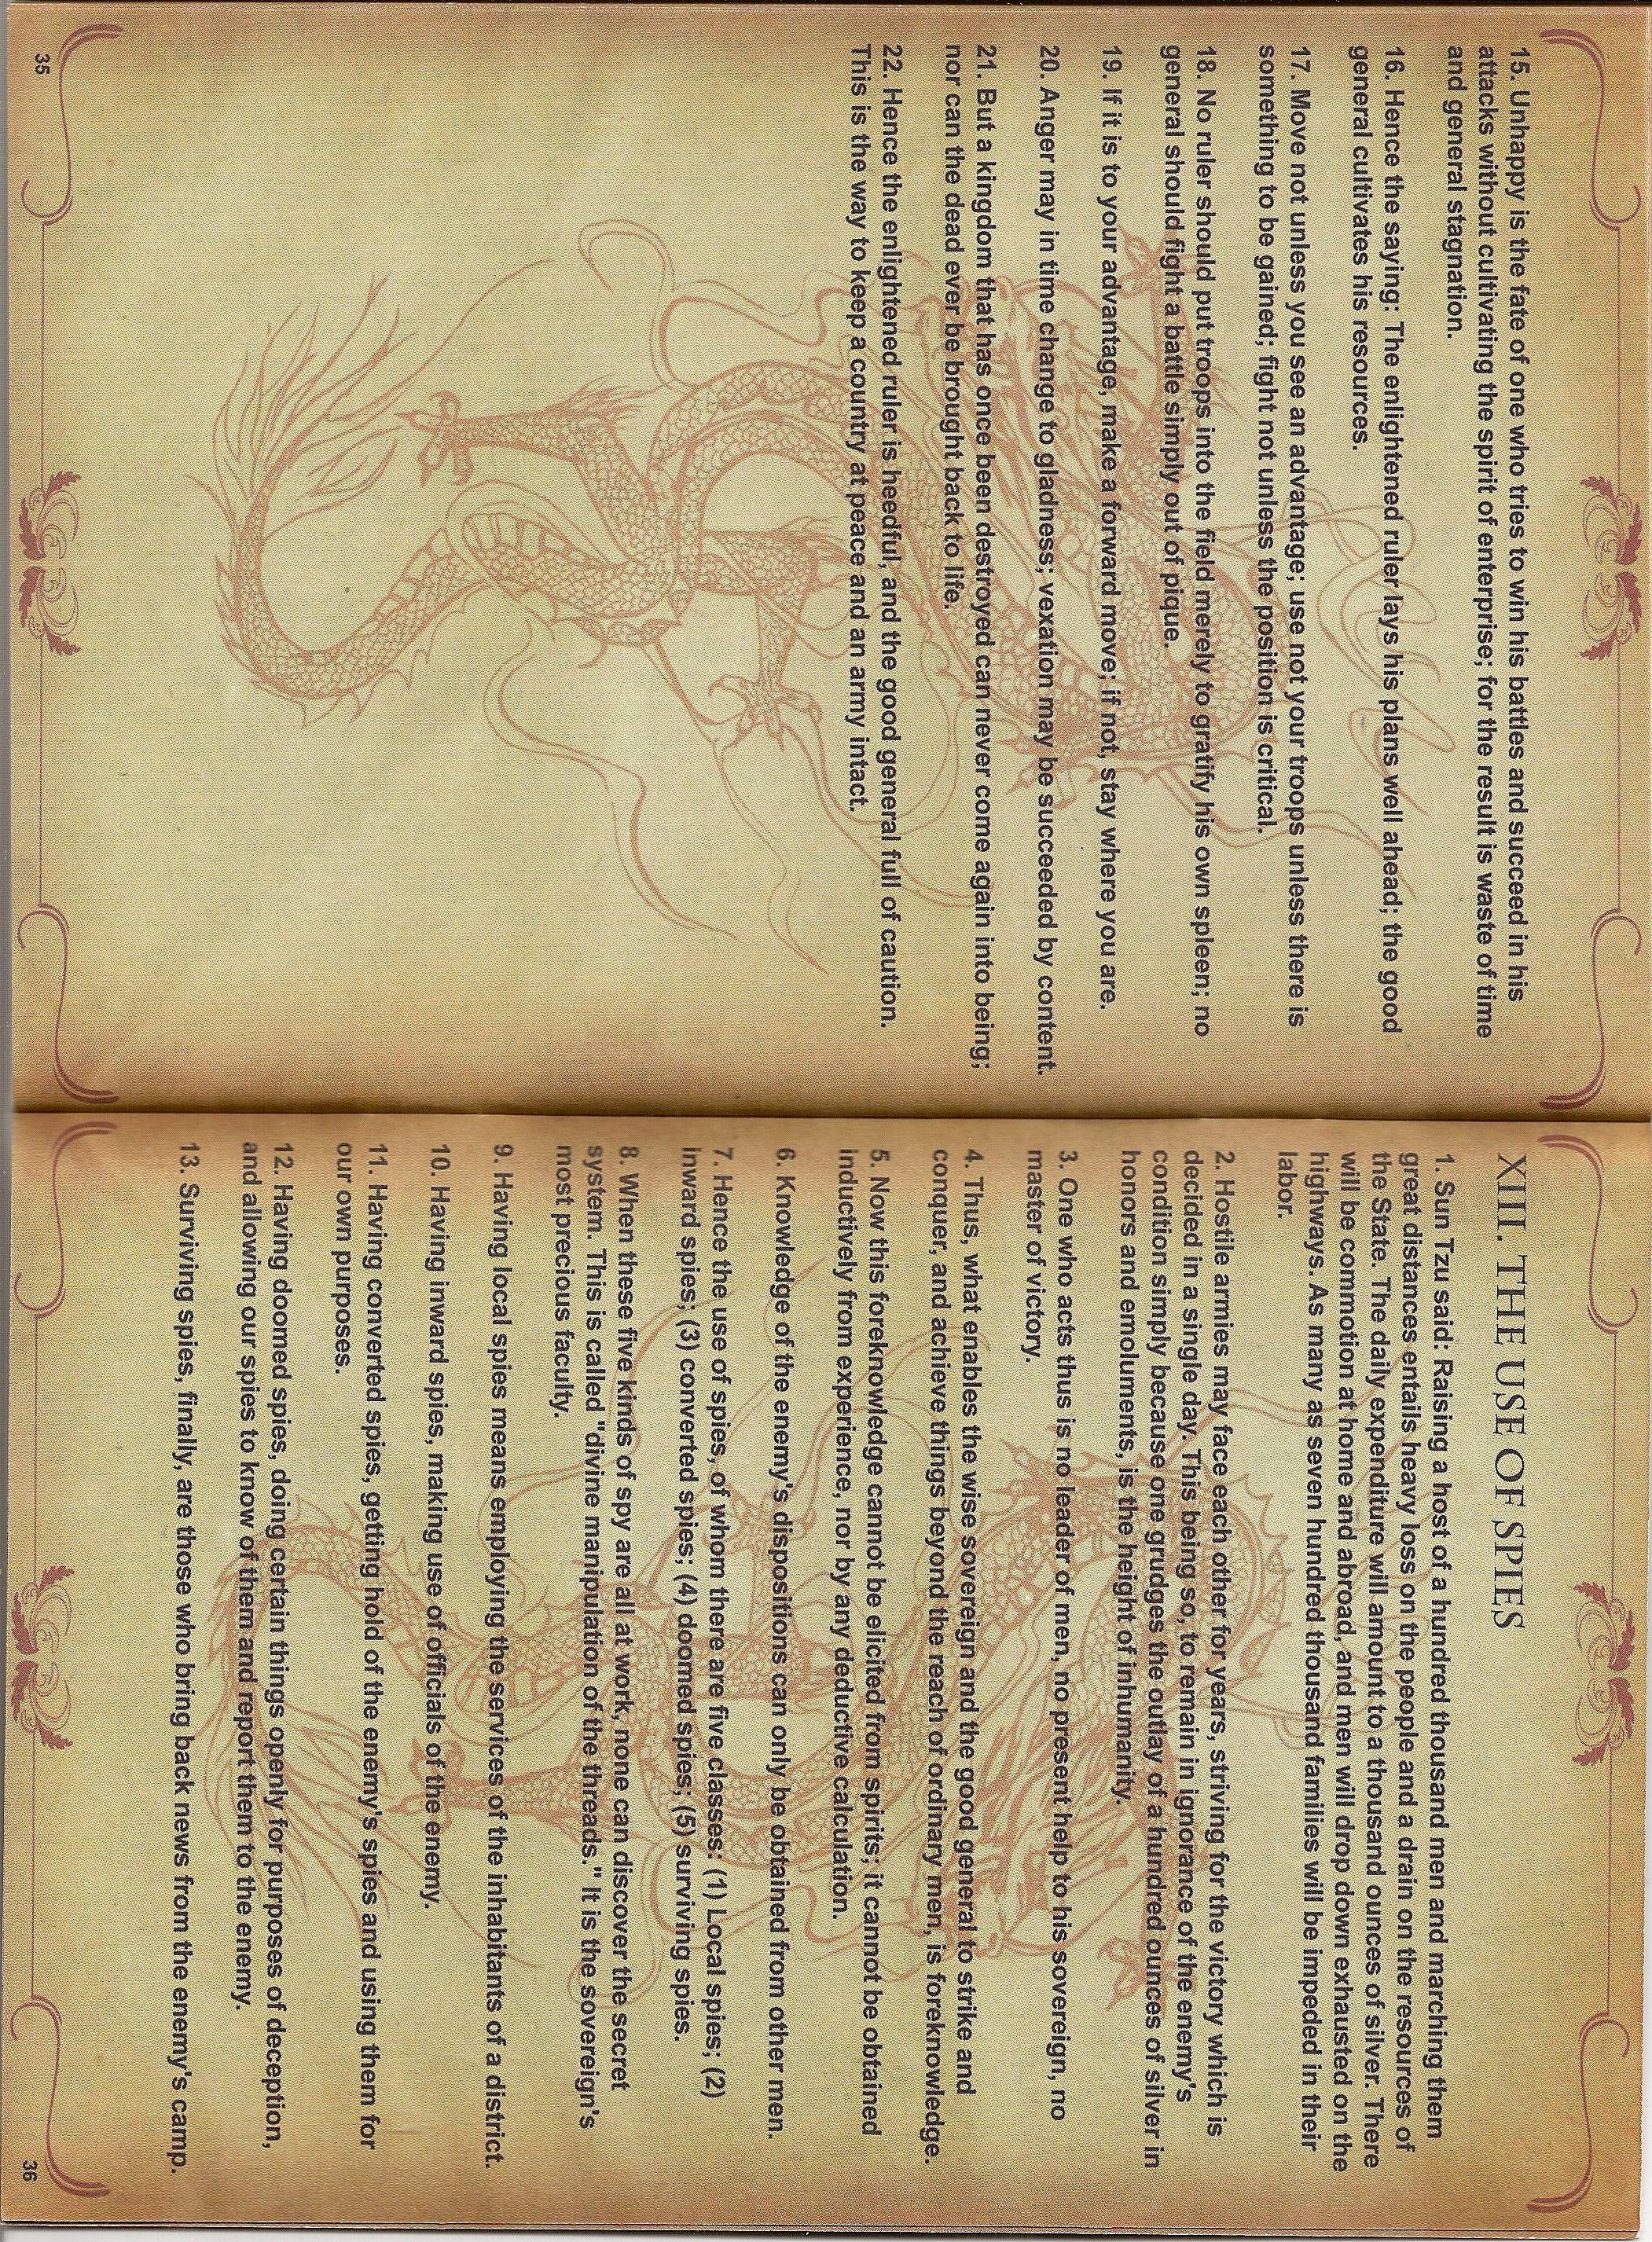 15. Unhappy is the fate of one who tries to win his battles and succeed in his
attacks without cultivating the spirit of enterprise; for the result is waste of time
and general stagnation.
16. Hence the saying: The enlightened ruler lays his plans well ahead; the good
general cultivates his resources.
17. Move not unless you see an advantage; use not your troops unless there is
something to be gained; fight not unless the position is critical.
18. No ruler should put troops into the field merely to gratify his own spleen; no
general should fight a battle simply out of pique.
19. If it is to your advantage, make a forward move; if not, stay where you are.
20. Anger may in time change to gladness; vexation may be succeeded by content.
21. But a kingdom that has once been destroyed can never come again into being;
nor can the dead ever be brought back to life.
22. Hence the enlightened ruler is heedful, and the good general full of caution.
This is the way to keep a country at peace and an army intact.
35
XIII. THE USE OF SPIES
1. Sun Tzu said: Raising a host of a hundred thousand men and marching them
great distances entails heavy loss on the people and a drain on the resources of
the State. The daily expenditure will amount to a thousand ounces of silver. There
will be commotion at home and abroad, and men will drop down exhausted on the
highways. As many as seven hundred thousand families will be impeded in their
labor.
2. Hostile armies may face each other for years, striving for the victory which is
decided in a single day. This being so, to remain in ignorance of the enemy's
condition simply because one grudges the outlay of a hundred ounces of silver in
honors and emoluments, is the height of inhumanity.
3. One who acts thus is no leader of men, no present help to his sovereign, no
master of victory.
4. Thus, what enables the wise sovereign and the good general to strike and
conquer, and achieve things beyond the reach of ordinary men, is foreknowledge.
5. Now this foreknowledge cannot be elicited from spirits; it cannot be obtained
inductively from experience, nor by any deductive calculation.
6. Knowledge of the enemy's dispositions can only be obtained from other men.
7. Hence the use of spies, of whom there are five classes: (1) Local spies; (2)
inward spies; (3) converted spies; (4) doomed spies; (5) surviving spies.
8. When these five kinds of spy are all at work, none can discover the secret
system. This is called "divine manipulation of the threads." It is the sovereign's
most precious faculty.
9. Having local spies means employing the services of the inhabitants of a district.
10. Having inward spies, making use of officials of the enemy.
11. Having converted spies, getting hold of the enemy's spies and using them for
our own purposes.
12. Having doomed spies, doing certain things openly for purposes of deception,
and allowing our spies to know of them and report them to the enemy.
13. Surviving spies, finally, are those who bring back news from the enemy's camp.
36